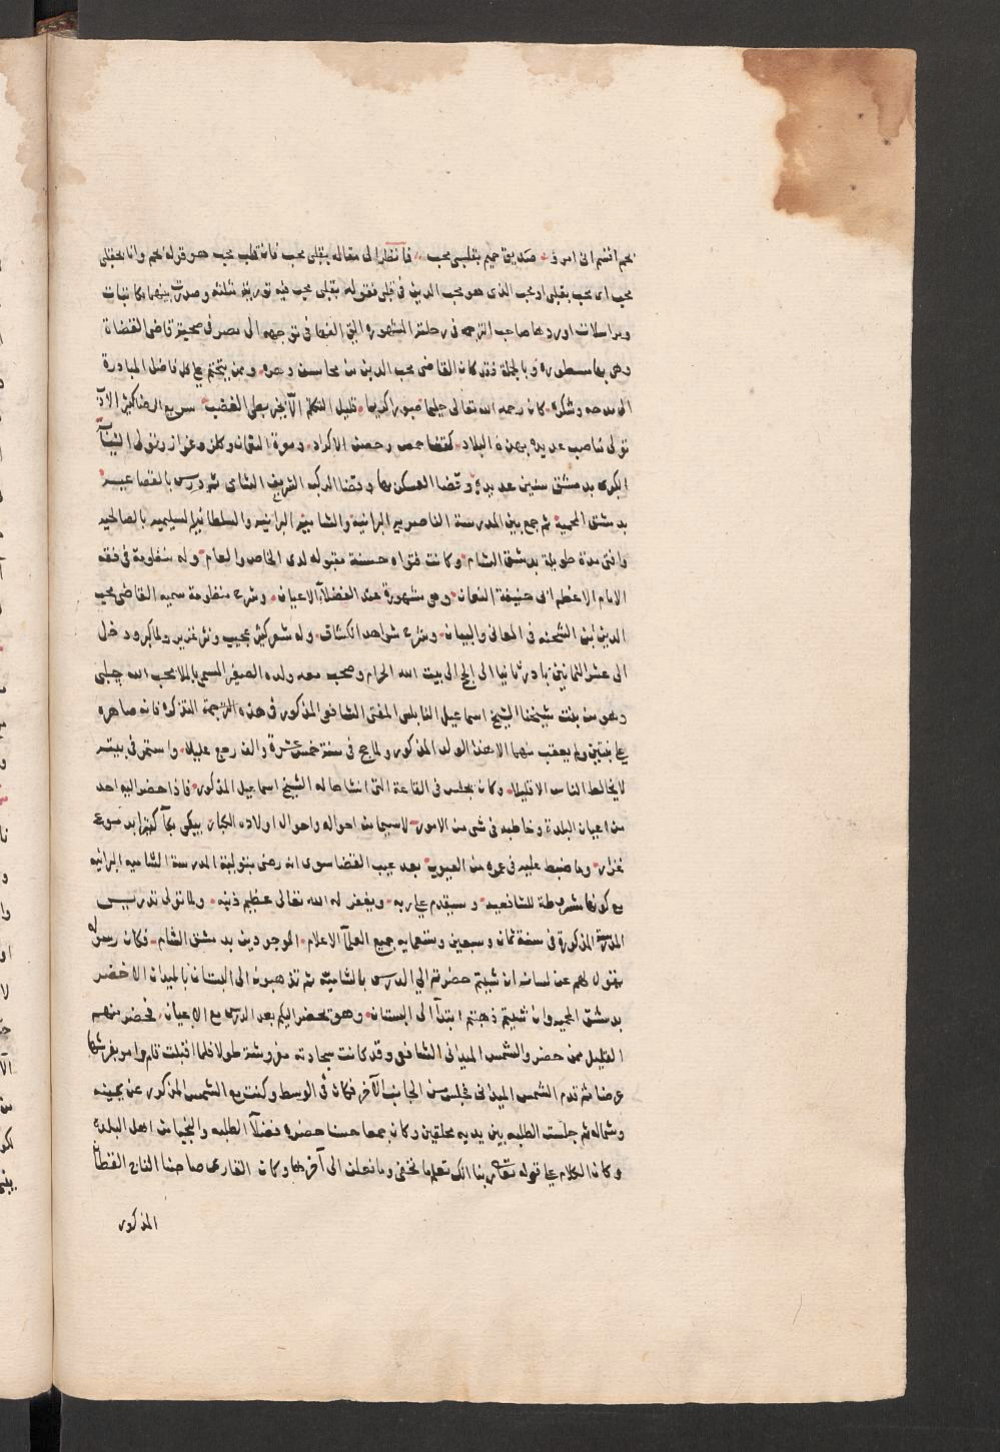 نجم انتم الى امر و صديق حميم بقلبى محب فانظر الى مقاله بقلبى محب فان قلب محب هو قوله نجم وانا بقلبى
محب اى محب بقلبى او محب الذى هو محب الدين فى قلبى فقوله بقلبى محب فيه تورية مثلثة وصدرت بينهما مكاتبات
ومراسلات اوردها صاحب الترجمه فى رحلته المشهوره التى الفها فى توجهه الى مصر فى صحبة قاضى القضاة
وهى بها مسطوره وبالجملة فقد كان القاضى محب الدين من محاسن دهره وممن يتحتم على كل فاضل المبادرة
الى مدحه وشكره كان رحمه الله تعالى حليما صبورا كريما قليل التكلم الا بخير بطى الغضب سريع الرضا كثير
تولى مناصب عديده بهذه البلاد كقضا حمص وحصن الاكراد ومعرة النعمان وكلز وعزاز وتولى النيابة
الكبرى بدمشق سنين عديدة وقضا العسكر بها وقضا الركب الشريف الشامى ثم درس بالقصاعيه
بدمشق المحمية ثم جمع بين المدرسة الناصرية البرانية والشامية البرانيه والسلطانية السليميه بالصالحيه
وافتى مدة طويلة بدمشق الشام وكانت فتواه حسنة مقبوله لدى الخاص والعام وله منظومة فى فقه
الامام الاعظم ابى حنيفة النعمان وهى مشهورة عند الفضلا الاعيان وشرح منظومة سميه القاضى محب
الدين ابن الشحنه فى المعانى والبيان وشرح شواهد الكشاف وله شعر كثير عجيب ونثر غزير ولما كبر ودخل
الى عشر الثمانين بادر ثانيا الى الحج الى بيت الله الحرام وصحب معه ولده الصغير المسمى بالملا محب الله چلبى
وهو من بنت شيخنا الشيخ اسماعيل النابلسى المفتى الشافعى المذكور فى هذه الترجمة التذكره فانه صاهره
على بنتين ولم يعقب منهما الا هذا الولد المذكور ولما حج فى سنة خمس عشرة والف رجع عليلا واستمر فى بيته
لا يخالط الناس الا قليلا وكان يجلس فى القاعة التى انشاها له الشيخ اسماعيل المذكور فاذا حضر اليه احد
من اعيان البلدة وخاطبه فى شى من الامور لا سيما من احواله واحوال اولاده الكبار يبكى بكآ كثيرا بدموع
غزار وما ضبط عليه فى عمره من العيوب بعد عيب القضا سوى انه رضى بتولية المدرسة الشاميه البرانيه
مع كونها مشروطة للشافعيه وسيقدم على ربه ويغفر له الله تعالى عظيم ذنبه ولما تولى تدريس
المدرسة المذكورة فى سنة ثمان وسبعين وتسعمايه جميع العلمآ الاعلام الموجودين بدمشق الشام فكان رسوله
يقول لهم عن لسانه ان شيتم حضرتم الى الدرس بالشاميه ثم تذهبون الى البستان بالميدان الاخضر
بدمشق المحميه وان شيتم ذهبتم ابتدآ الى البستان وهو يحضر اليكم بعد الدرس مع الاعيان فحضر منهم
القليل ممن حضر والشمس الميدانى الشافعى وقد كانت سجادته مفروشة طولا فلما اقبلت قام وامر بفرشها
عرضا ثم قدم الشمس الميدانى فجلس من الجانب الآخر فكان فى الوسط وكنت مع الشمس المذكور عن يمينه
وشماله ثم جلست الطلبه بين يديه محلقين وكان جمعا حسنا حضره فضلآ الطلبه والنجبا من اهل البلدة
وكان الكلام على قوله تعالى ربنا انك تعلم ما نخفى وما نعلن الى آخرها وكان القارى صاحبنا التاج القطان
المذكور